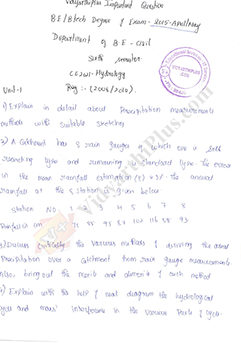 Vidyarthiplus Important Question
B.E/B.tech Degree Exam - 2015 - April/may
Department of B.E - Civil
Sixth semester
CE2021 - Hydrology
Reg :- (2008/2010).
VIDYARTHIPLUS
Unit - 1
1) Explain in detail about Precipitation measurements
methods with suitable sketches
2) A catchment has 8 rain gauges of which one is self
recording type and remaining standard type. The error
in the mean rainfall estimation is 4%. The annual
rainfall at the 8 station is given below
Station NO 1 4 5 6 7 8
Rainfall in cm
3) Discuss the various methods of deriving the areal
Precipitation over a catchment from rain gauge measurements.
Also, bring out the merits and demerits of each method
4) Explain with the help of neat diagram the hydrological
cycle and man's interference in the various Parts of cycle.